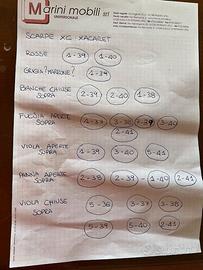 Marini mobili srl
SCARPE XG XACAUET
ROSSE 1-39 1-40
GRIGIA?MARRONE? 1-39
BIANCHE CHIUSE SOPRA 2-39 2-40 1-38
FUCSIA APERTE SOPRA 1-37 3-38 2-39 3-40
2-41
VIOLA APERTE SOPRA 1-39 3-40 5-41
PANNA APERTE SOPRA 2-38 2-39 - 1-40 2-41
VIOLA CHIUSE SOPRA 5-36 3-37 3-38
5-39 5-40 2-41